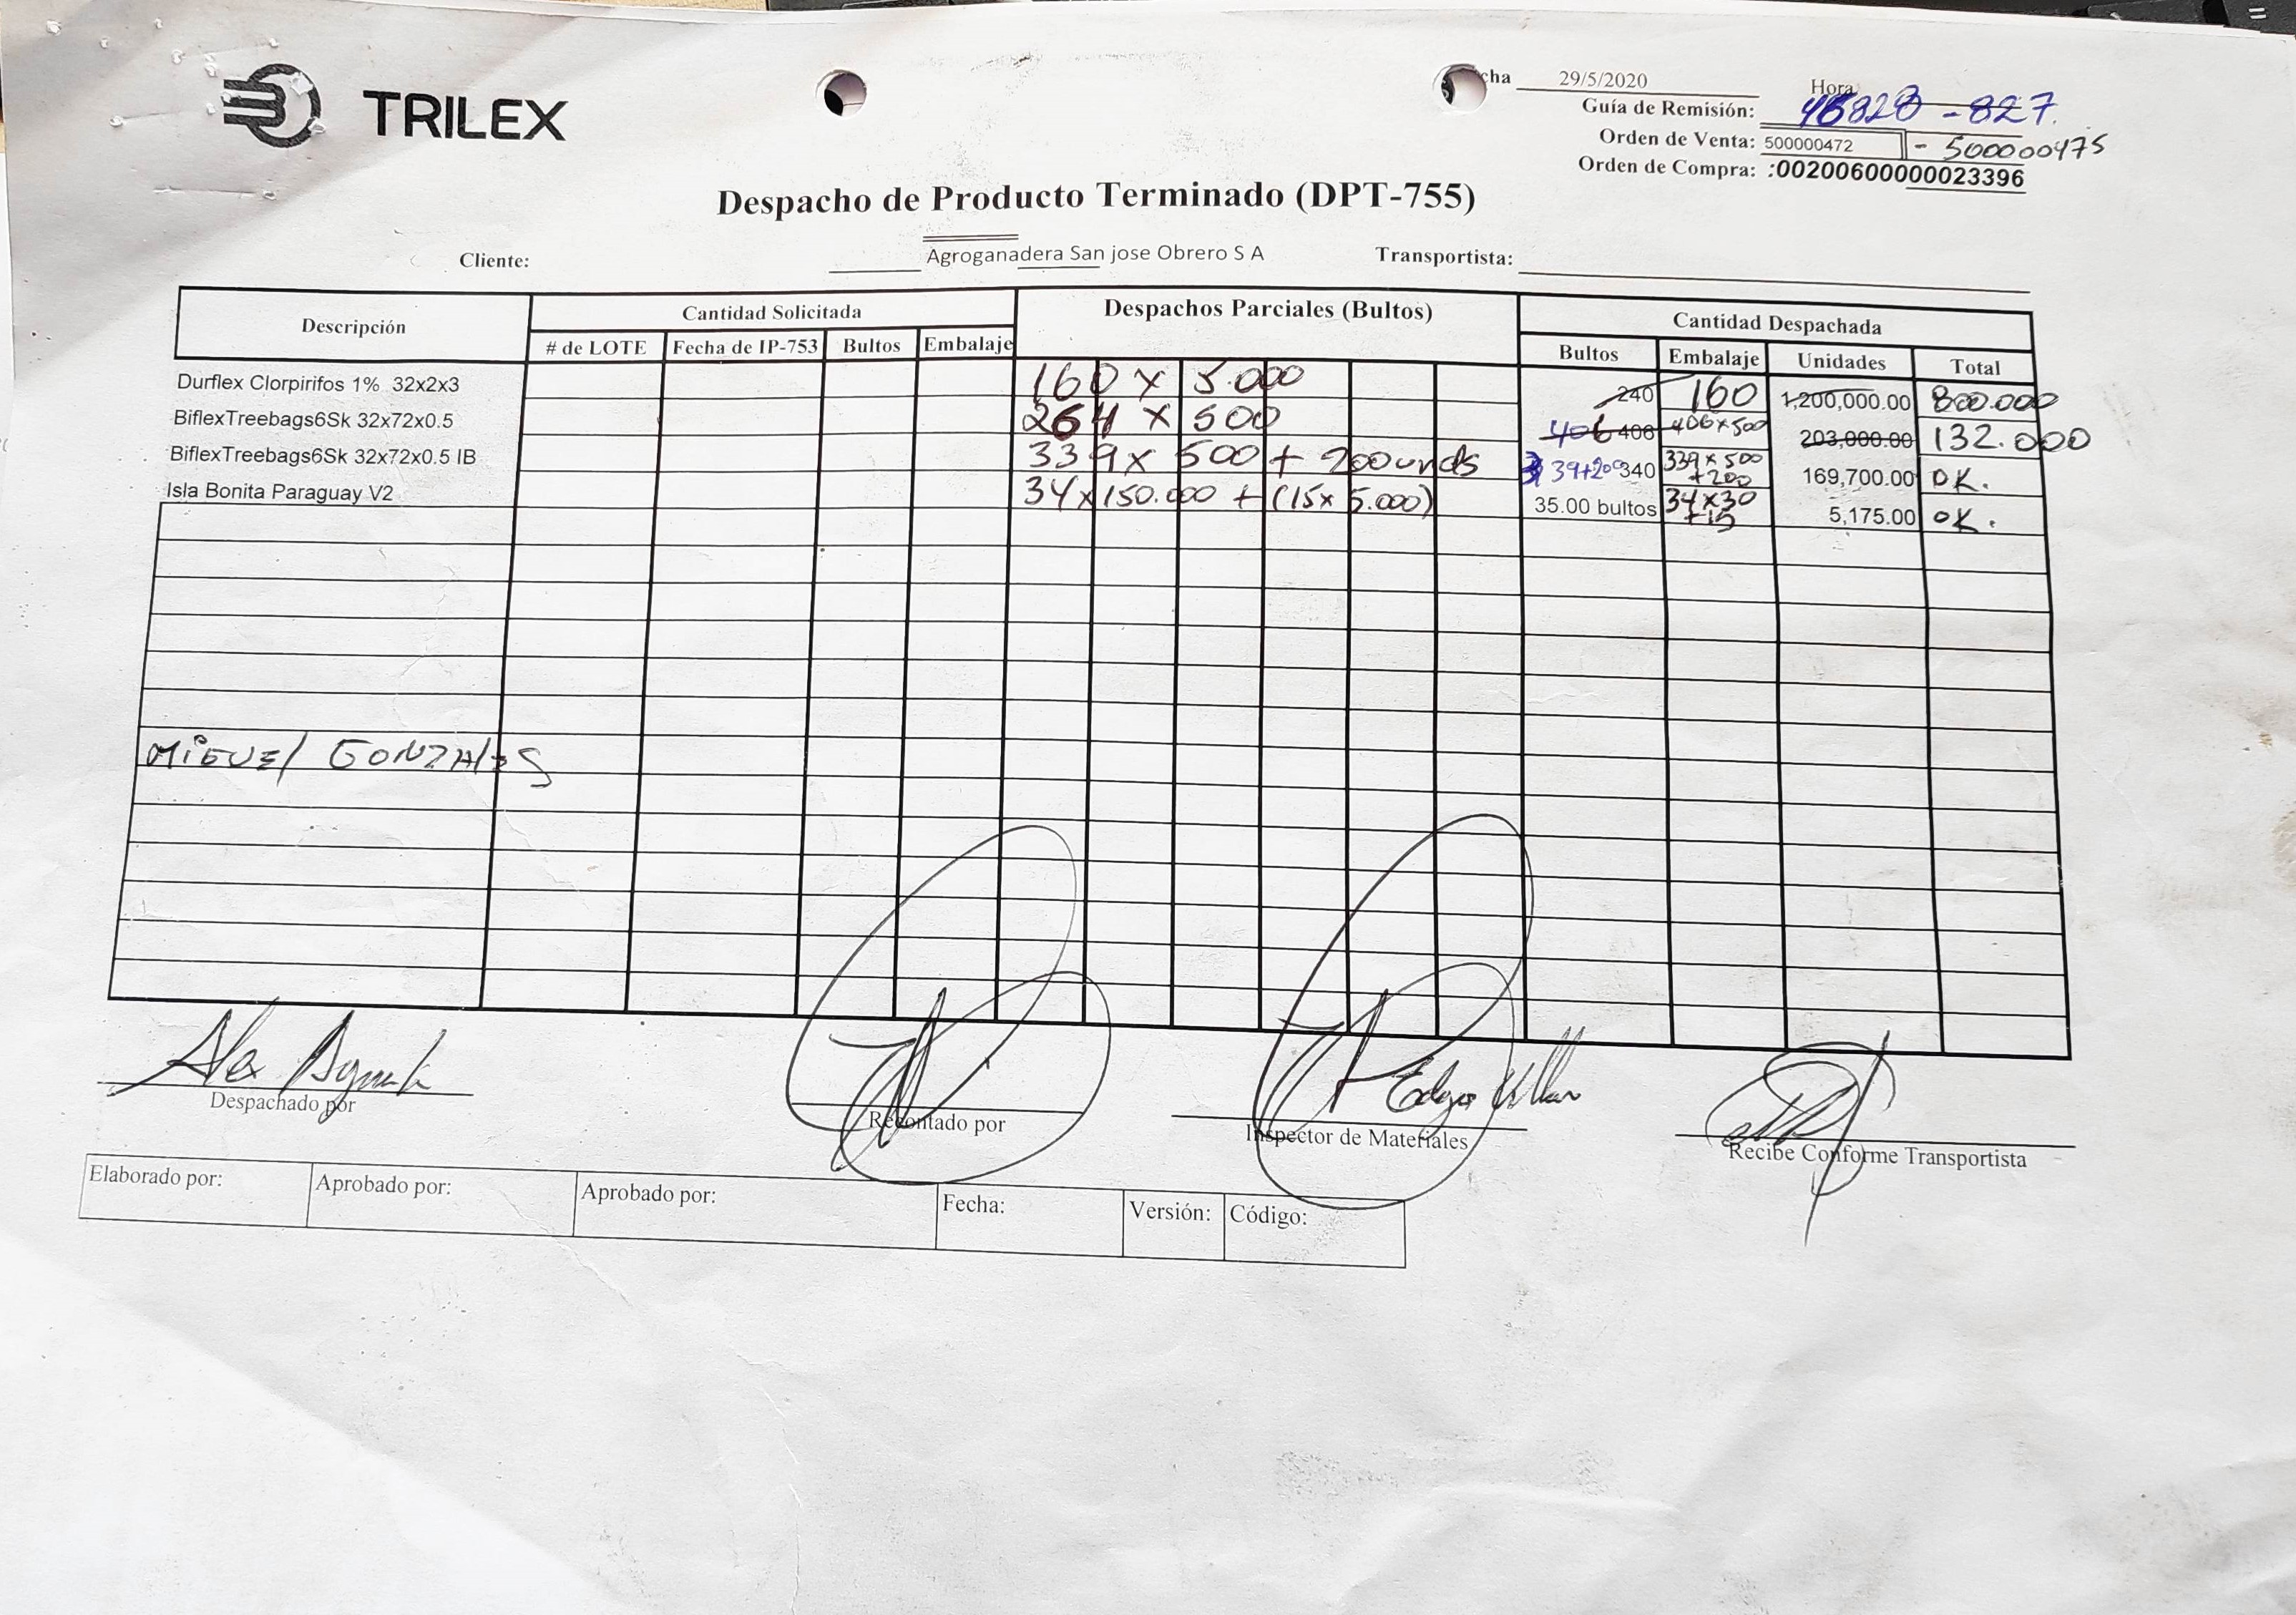 TRILEX
cha 29/5/2020 Hora
Guía de Remisión: 45828 - 827.
Orden de Venta: 500000472 - 500000475
Orden de Compra: :00200600000023396
Despacho de Producto Terminado (DPT-755)
Cliente: Agroganadera San jose Obrero S A Transportista:
Descripción Cantidad Solicitada Despachos Parciales (Bultos) Cantidad Despachada
# de LOTE Fecha de IP-753 Bultos Embalaje Bultos Embalaje Unidades Total
Durflex Clorpirifos 1% 32x2x3 160 x 5.000 240 160 1,200,000.00 800.000
BiflexTreebags6Sk 32x72x0.5 264 x 500 406 406 406x500 203,000.00 132.000
BiflexTreebags6Sk 32x72x0.5 IB 339x 500 + 200unds 339+200 340 339x500 +200 169,700.00 OK.
Isla Bonita Paraguay V2 34x150.000 + (15x 5.000) 35.00 bultos 34x30 +15 5,175.00 OK.
MiGUEl GONZAlES
Alex
Edgar
Despachado por Recontado por Inspector de Materiales Recibe Conforme Transportista
Elaborado por: Aprobado por: Aprobado por: Fecha: Versión: Código: